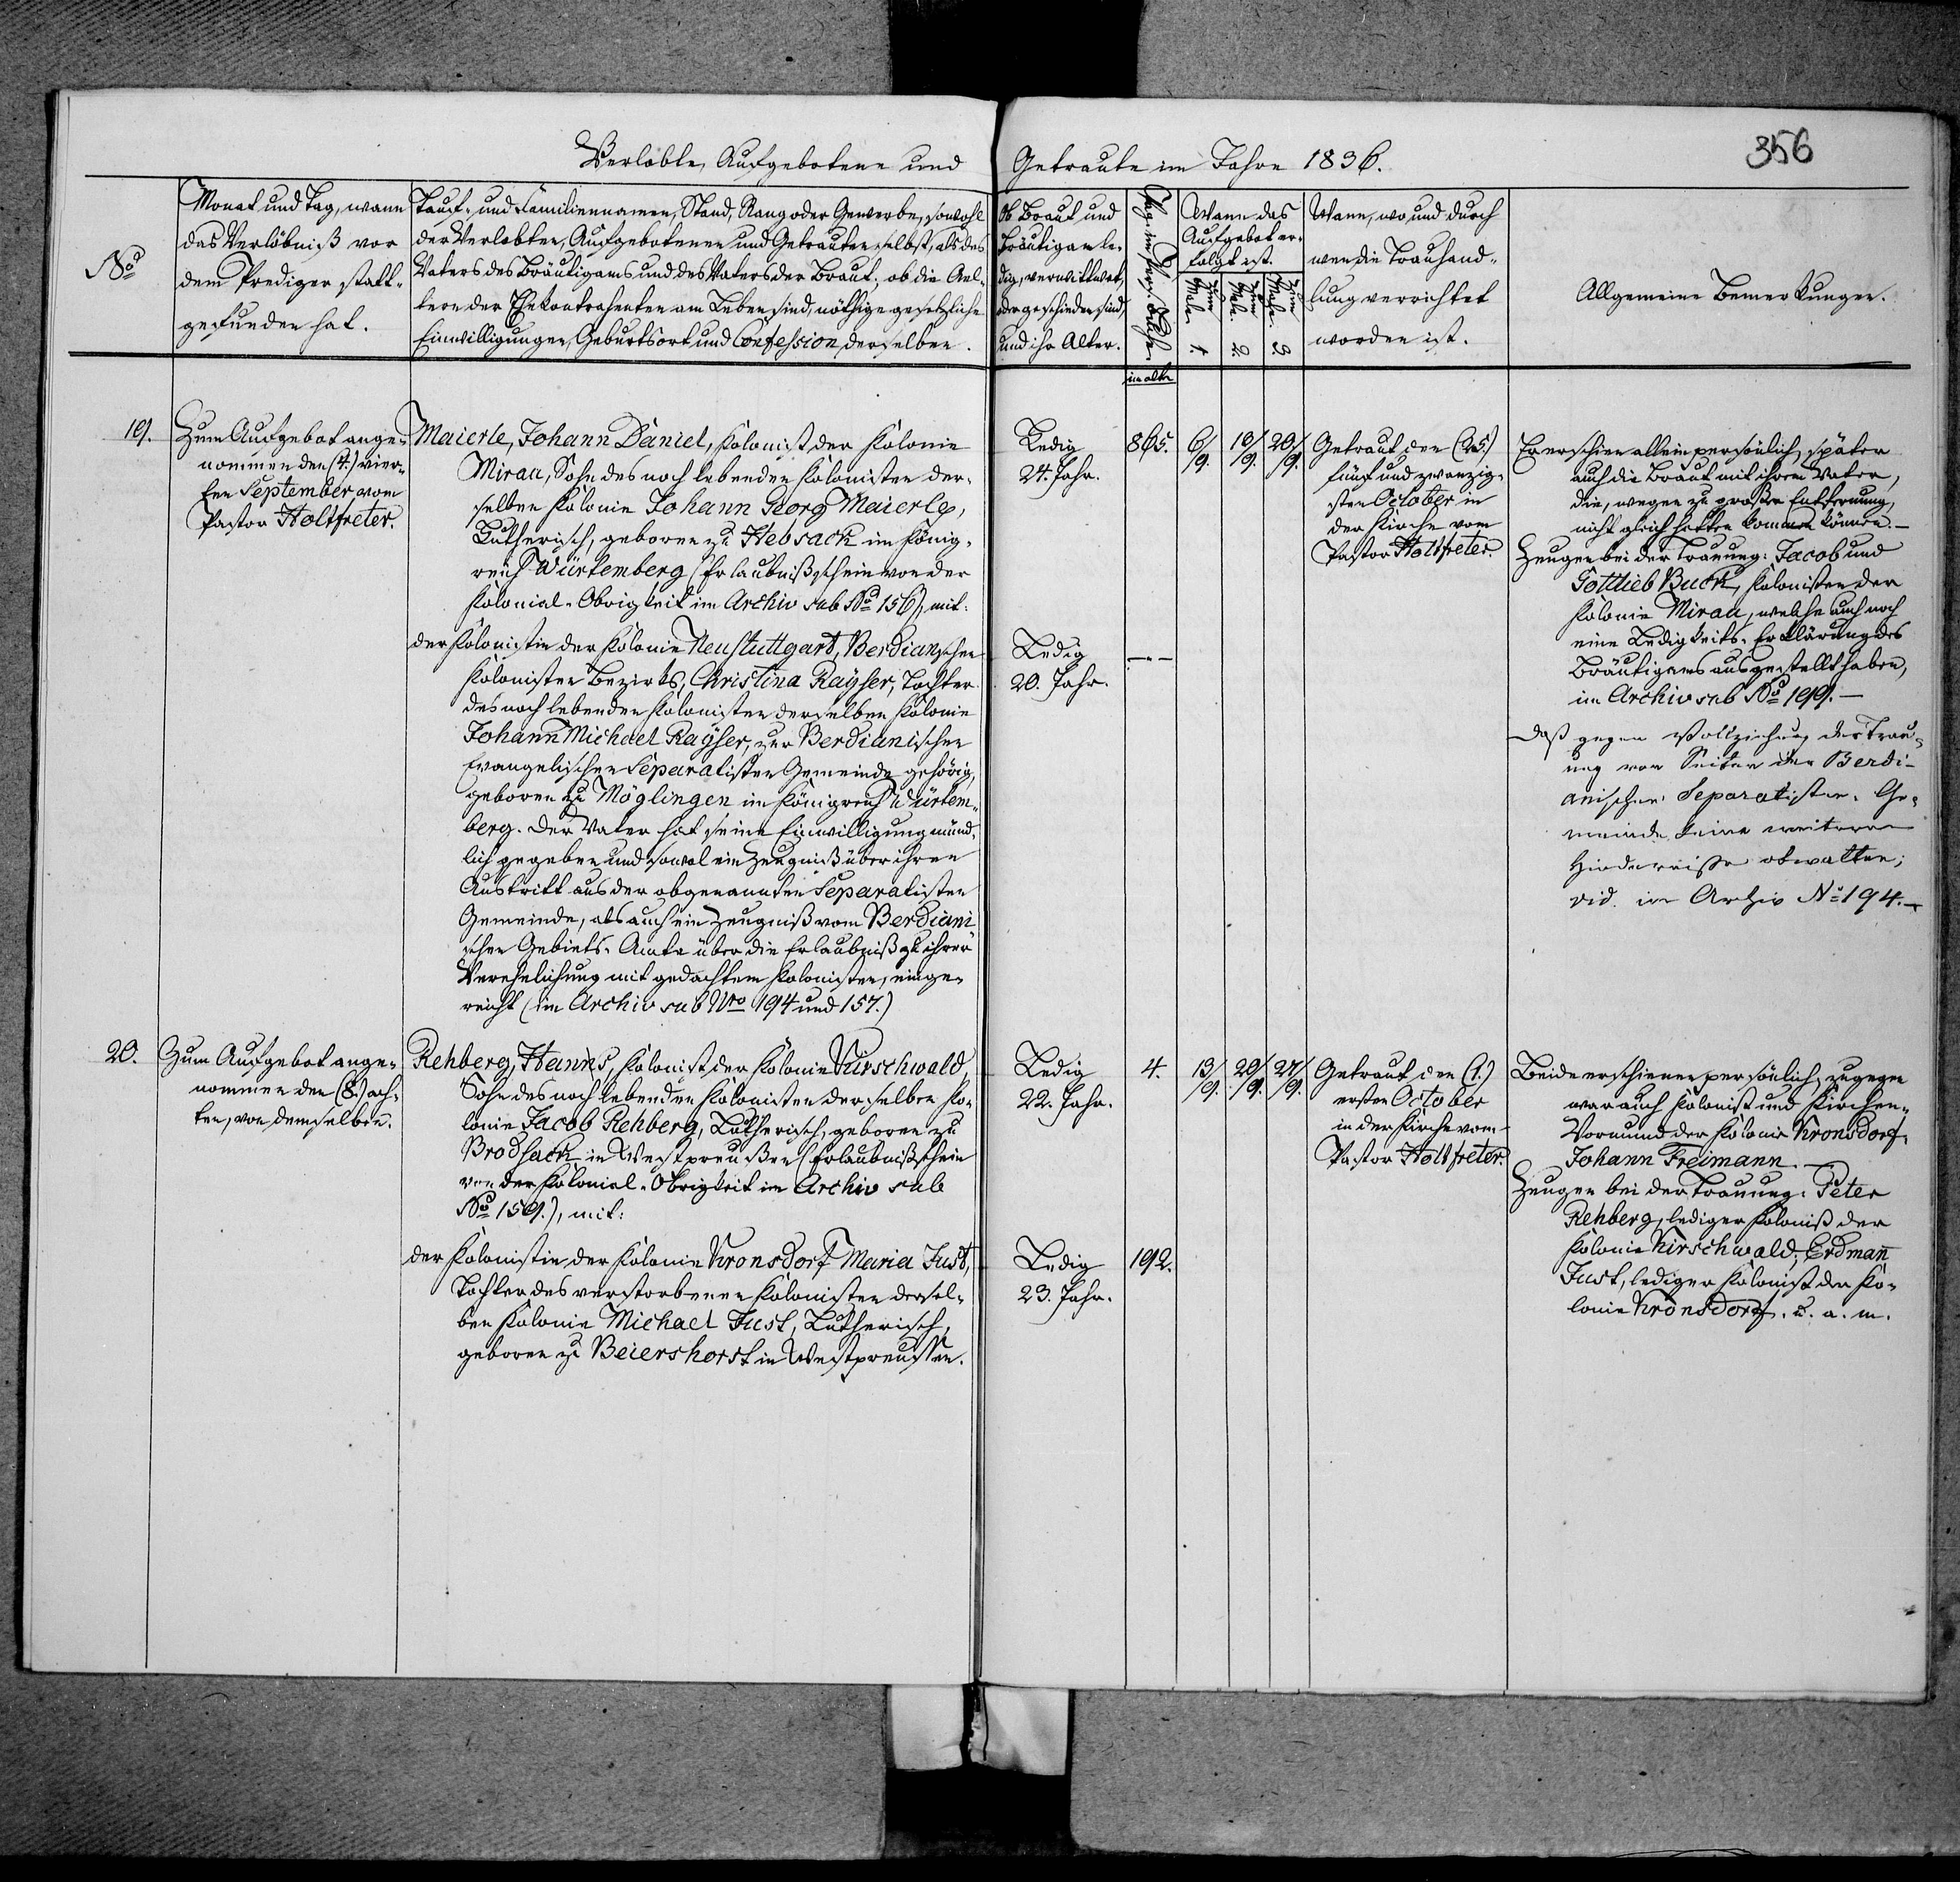 356
Verlobte, Aufgebotene und Getraute im Jahre 1836.
No
Monat und Tag, wann
das Verlöbniß vor
dem Prediger statt-
gefunden hat.
Tauf- und Familiennamen, Stand, Rang oder Gewerbe, sowohl
der Verlobten, Aufgebotenen und Getrauten selbst, als des
Vaters des Bräutigams und des Vaters der Braut; ob die Ael-
tern der Ehekontrahenten am Leben sind, nöthige gesetzliche
Einwilligungen, Geburtsort und Confession derselben.
Ob Braut und
Bräutigam le-
dig, verwittwet,
oder geschieden sind,
und ihr Alter.
im alten
Wann das
Aufgebot er-
folgt ist.
Zum 1. Male.
Zum 2. Male.
Zum 3. Male.
Wann, wo, und durch
wen die Trauhand-
lung verrichtet
worden ist.
Allgemeine Bemerkungen.
19.
Zum Aufgebot ange-
nommen den (4.) vier-
ten September vom
Pastor Holtfreter.
Maierle, Johann Daniel, Kolonist der Kolonie
Mirau, Sohn des noch lebenden Kolonisten der-
selben Kolonie Johann Georg Maierle,
Lutherisch, geboren zu Hebsack im König-
reich Würtemberg (Erlaubnißschein von der
Kolonial-Obrigkeit im Archiv sub No 156), mit:
der Kolonistin der Kolonie Neustuttgart, Berdianschen
Kolonisten Bezirks, Christina Raÿser, Tochter
des noch lebenden Kolonisten derselben Kolonie
Johann Michael Raÿser, zur Berdianischen
Evangelischen Separatisten Gemeinde gehörig,
geboren zu Möglingen im Königreich Würtem-
berg. Der Vater hat seine Einwilligung münd-
lich gegeben und sowol ein Zeugniß über ihren
Austritt aus der obgenannten Separatisten
Gemeinde, als auch ein Zeugniß vom Berdiani
schen Gebiets-Amte über die Erlaubniß zu ihrer
Verehelichung mit gedachtem Kolonisten, einge-
reicht (im Archiv sub Nro 194 und 157.)
Ledig
24. Jahr.
865.
6/9.
13/9.
20/9.
Ledig
20. Jahr.
---
Getraut den (25.)
fünf und zwanzig-
sten October in
der Kirche vom
Pastor Holtfreter.
Er erschien allein persönlich, später
auch die Braut mit ihrem Vater,
die, wegen zu großer Entfernung,
nicht gleich hatten kommen können. —
Zeugen bei der Trauung: Jacob und
Gottlieb Buck, Kolonisten der
Kolonie Mirau, welche auch noch
eine Ledigkeits-Erklärung des
Bräutigams ausgestellt haben,
im Archiv sub No 199. —
Daß gegen Vollziehung der Trau-
ung von Seiten der Berdi-
anischen Separatisten-Ge-
meinde keine weiteren
Hindernisse obwalten;
vid. im Archiv No 194. —
20.
Zum Aufgebot ange-
nommen den (8.) ach-
ten, von demselben.
Rehberg, Hanns, Kolonist der Kolonie Kirschwald,
Sohn des noch lebenden Kolonisten derselben Ko-
lonie Jacob Rehberg, Lutherisch, geboren zu
Brodsack in Westpreußen (Erlaubnißschein
von der Kolonial-Obrigkeit im Archiv sub
No 159.), mit:
der Kolonistin der Kolonie Kronsdorf Maria Just,
Tochter des verstorbenen Kolonisten dersel-
ben Kolonie Michael Just, Lutherisch,
geboren zu Beiershorst in Westpreussen.
Ledig
22. Jahr.
4.
13/9.
20/9.
27/9.
Ledig
23. Jahr.
192.
Getraut den (1.)
ersten October
in der Kirche vom
Pastor Holtfreter.
Beide erschienen persönlich, zugegen
war auch Kolonist und Kirchen-
Vormund der Kolonie Kronsdorf
Johann Freimann. —
Zeugen bei der Trauung: Peter
Rehberg, lediger Kolonist der
Kolonie Kirschwald; Erdmañ
Just, lediger Kolonist der Ko-
lonie Kronsdorf. u. a. m.